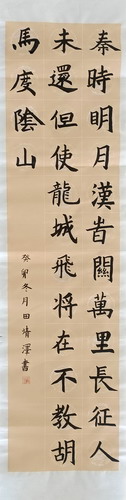 秦時明月漢旹關萬里長征人
未還但使龍城飛将在不教胡
馬度陰山
癸卯冬月田靖澤書